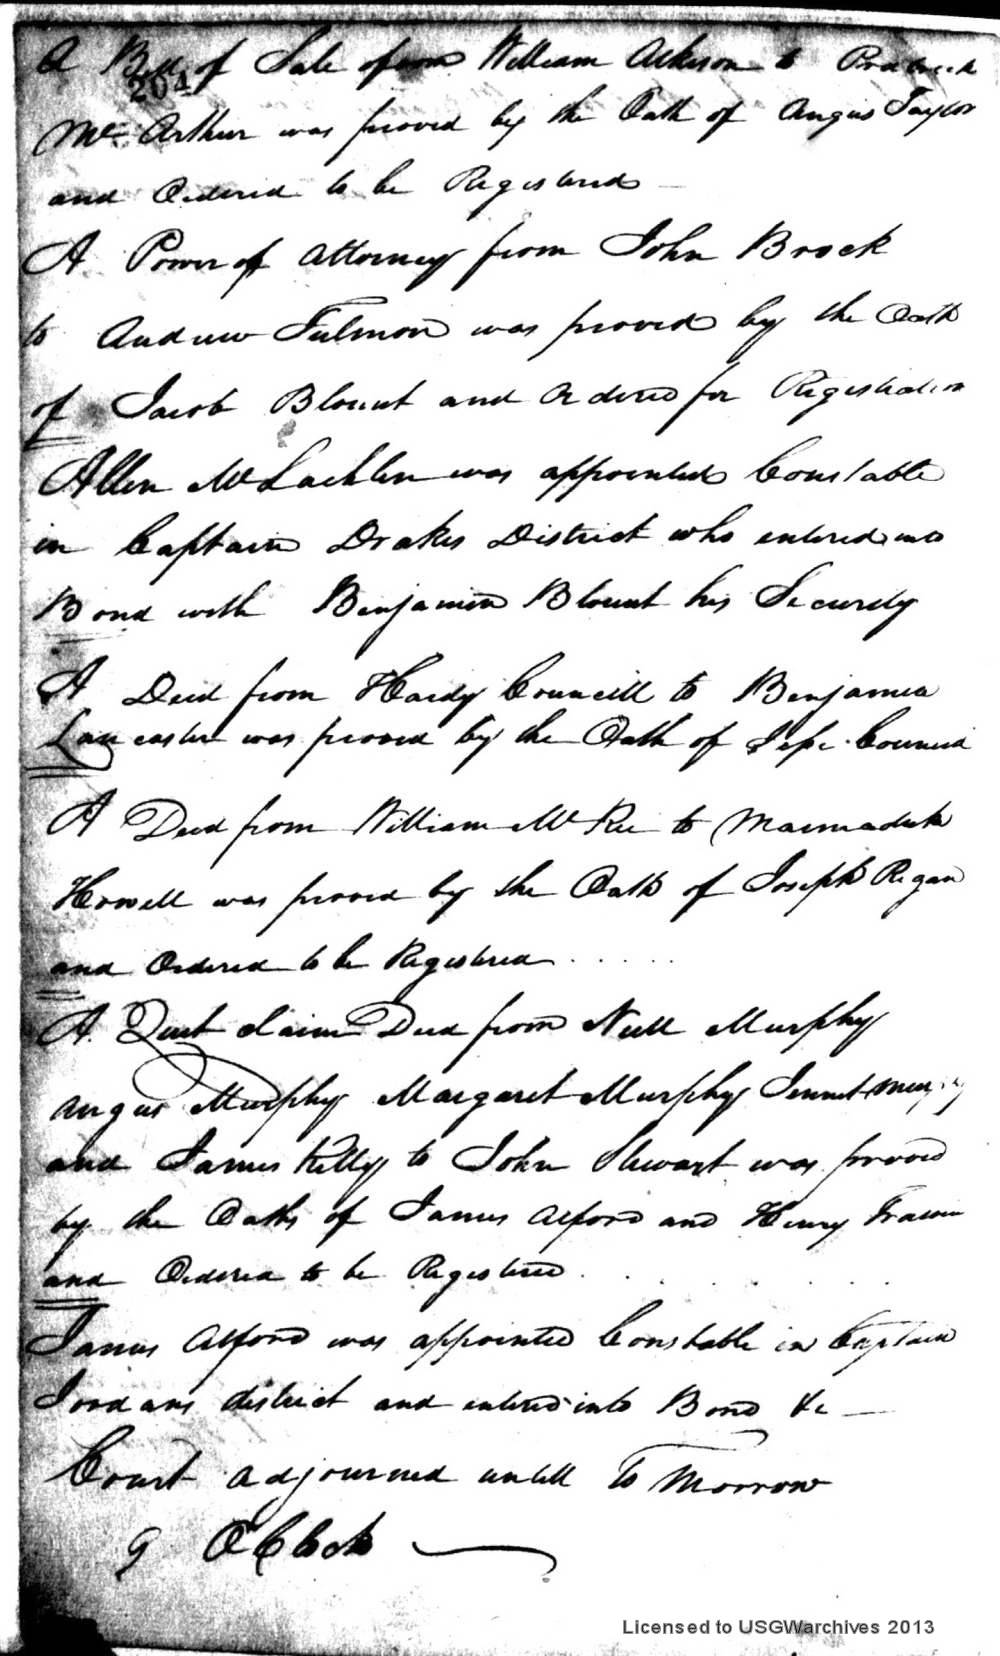 A Bill of Sale from William Atkison to
204
Mc Arthur was proved by the Oath of Angus Taylor
and Ordered to be Registered
A Power of Attorney from John Brock
to Andrew Fulmore was proved by the Oath
of Jacob Blount and Ordered for Registration
Allen McLachlen was appointed Constable
in Captain Drakes District who entered into
Bond with Benjamin Blount his Security
A Deed from Hardy Councill to Benjamin
Lancaster was proved by the Oath of Councill
A Deed from William McKee to Marmaduke
Howell was proved by the Oath of Joseph Regan
and Ordered to be Registered . . . . .
A Quit claim Deed from Neill Murphy
Angus Murphy Margaret Murphy Jennet Murphy
and James Kelly to John Stewart was proved
by the Oaths of James Alford and Henry
and Ordered to be Registered . . . . . .
James Alford was appointed Constable in Captain
Jordans district and entered into Bond &c —
Court adjourned untill To Morrow
9 OClock —
Licensed to USGWarchives 2013